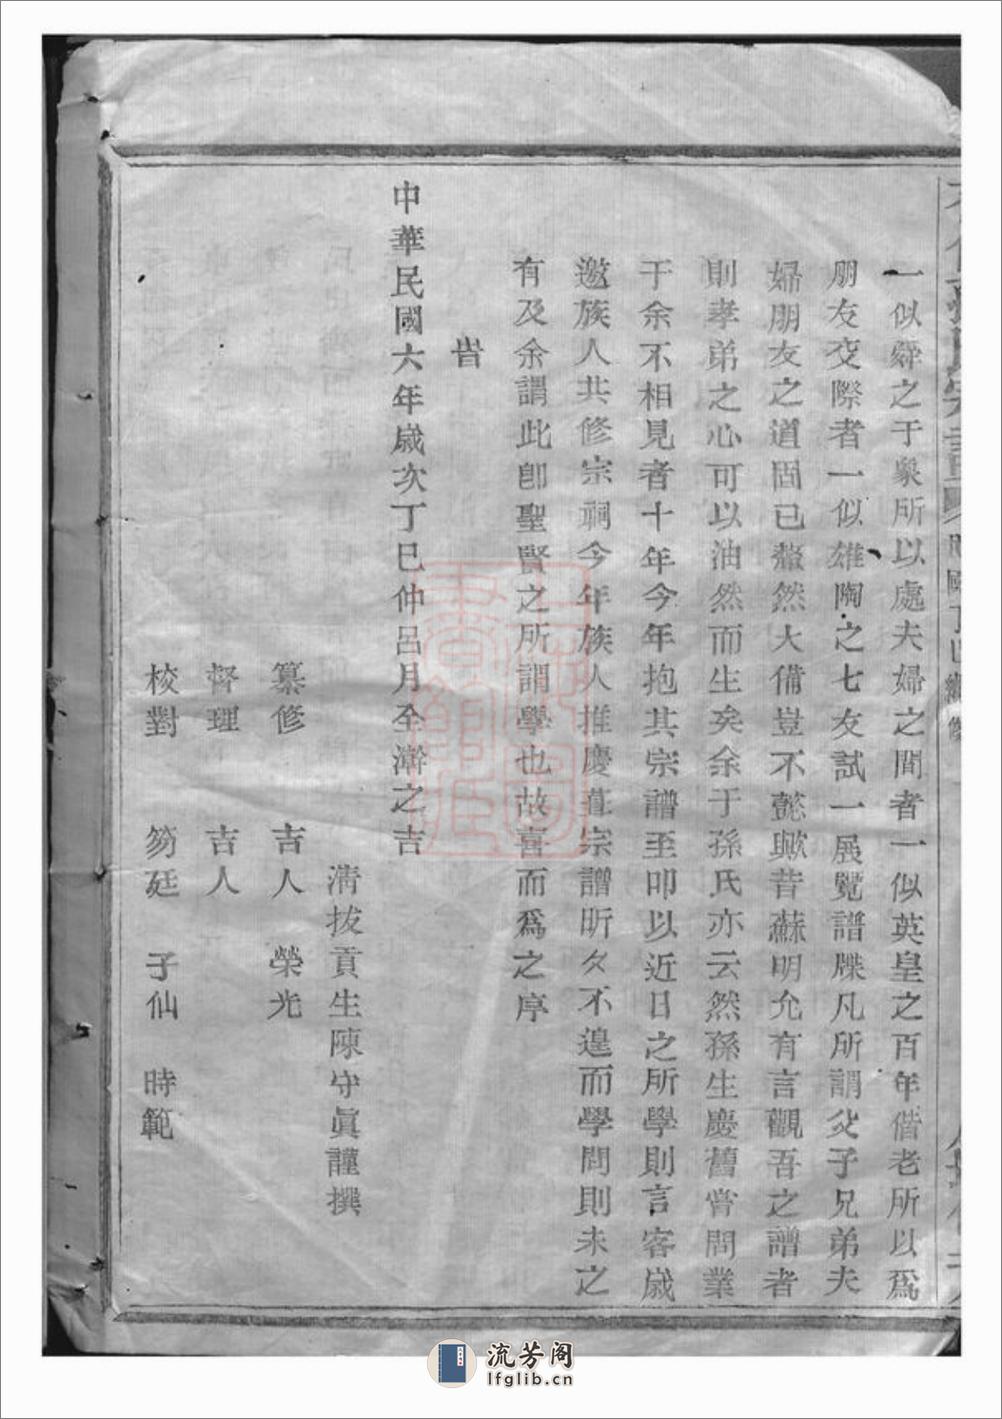 一似舜之于象所以處夫婦之間者一似英皇之百年偕老所以爲
朋友交際者一似雄陶之七友試一展覽譜牒凡所謂父子兄弟夫
婦朋友之道固已犛然大備豈不懿歟昔蘇明允有言觀吾之譜者
則孝弟之心可以油然而生矣余于孫氏亦云然孫生慶舊嘗問業
于余不相見者十年今年抱其宗譜至叩以近日之所學則言客歲
邀族人共修宗祠今年族人推慶葺宗譜昕夕不遑而學問則未之
有及余謂此卽聖賢之所謂學也故喜而爲之序
旹
中華民國六年歲次丁巳仲呂月全澣之吉
淸拔貢生陳守眞謹撰
纂修 吉人 榮光
督理 吉人
校對 笏廷 子仙 時範
流芳阁
lfglib.cn